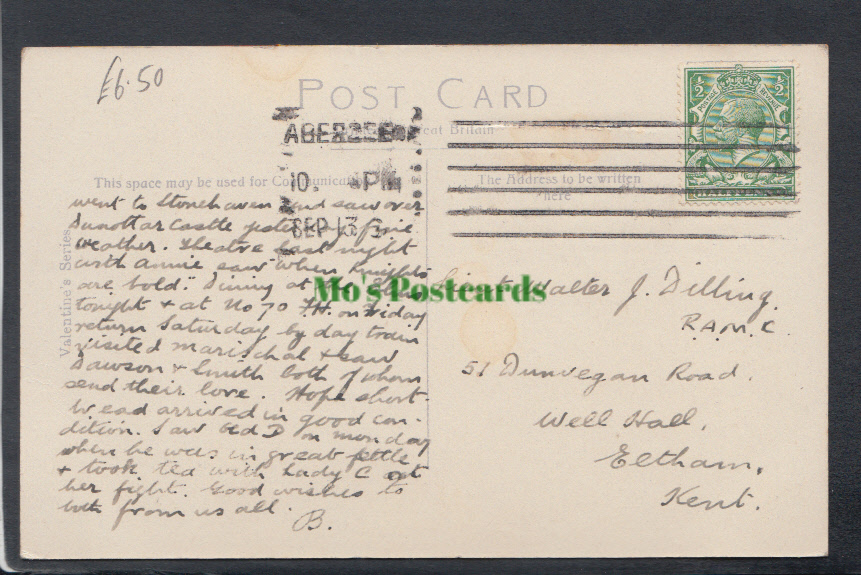 £6.50
POST CARD
Great Britain
ABERDEEN
10. PM
SEP 13
This space may be used for Communication
The Address to be written
here
Valentine's Series
½ ½
POSTAGE REVENUE
HALFPENNY
went to Stonehaven and saw over
Dunottar Castle fine
weather. Theatre last night
with Annie saw "When Knights
are bold". Dining at
tonight & at No 70 on Friday
return Saturday by day train
visited Marischal & saw
Dawson & Smith both of whom
send their love. Hope short-
bread arrived in good con-
dition. Saw D on Monday
when he was in great fettle
& took tea with Lady C at
her fight. Good wishes to
both from us all.
B.
Mo's Postcards
Walter J. Dilling,
R.A.M.C.
51 Dunvegan Road.
Well Hall,
Eltham,
Kent.